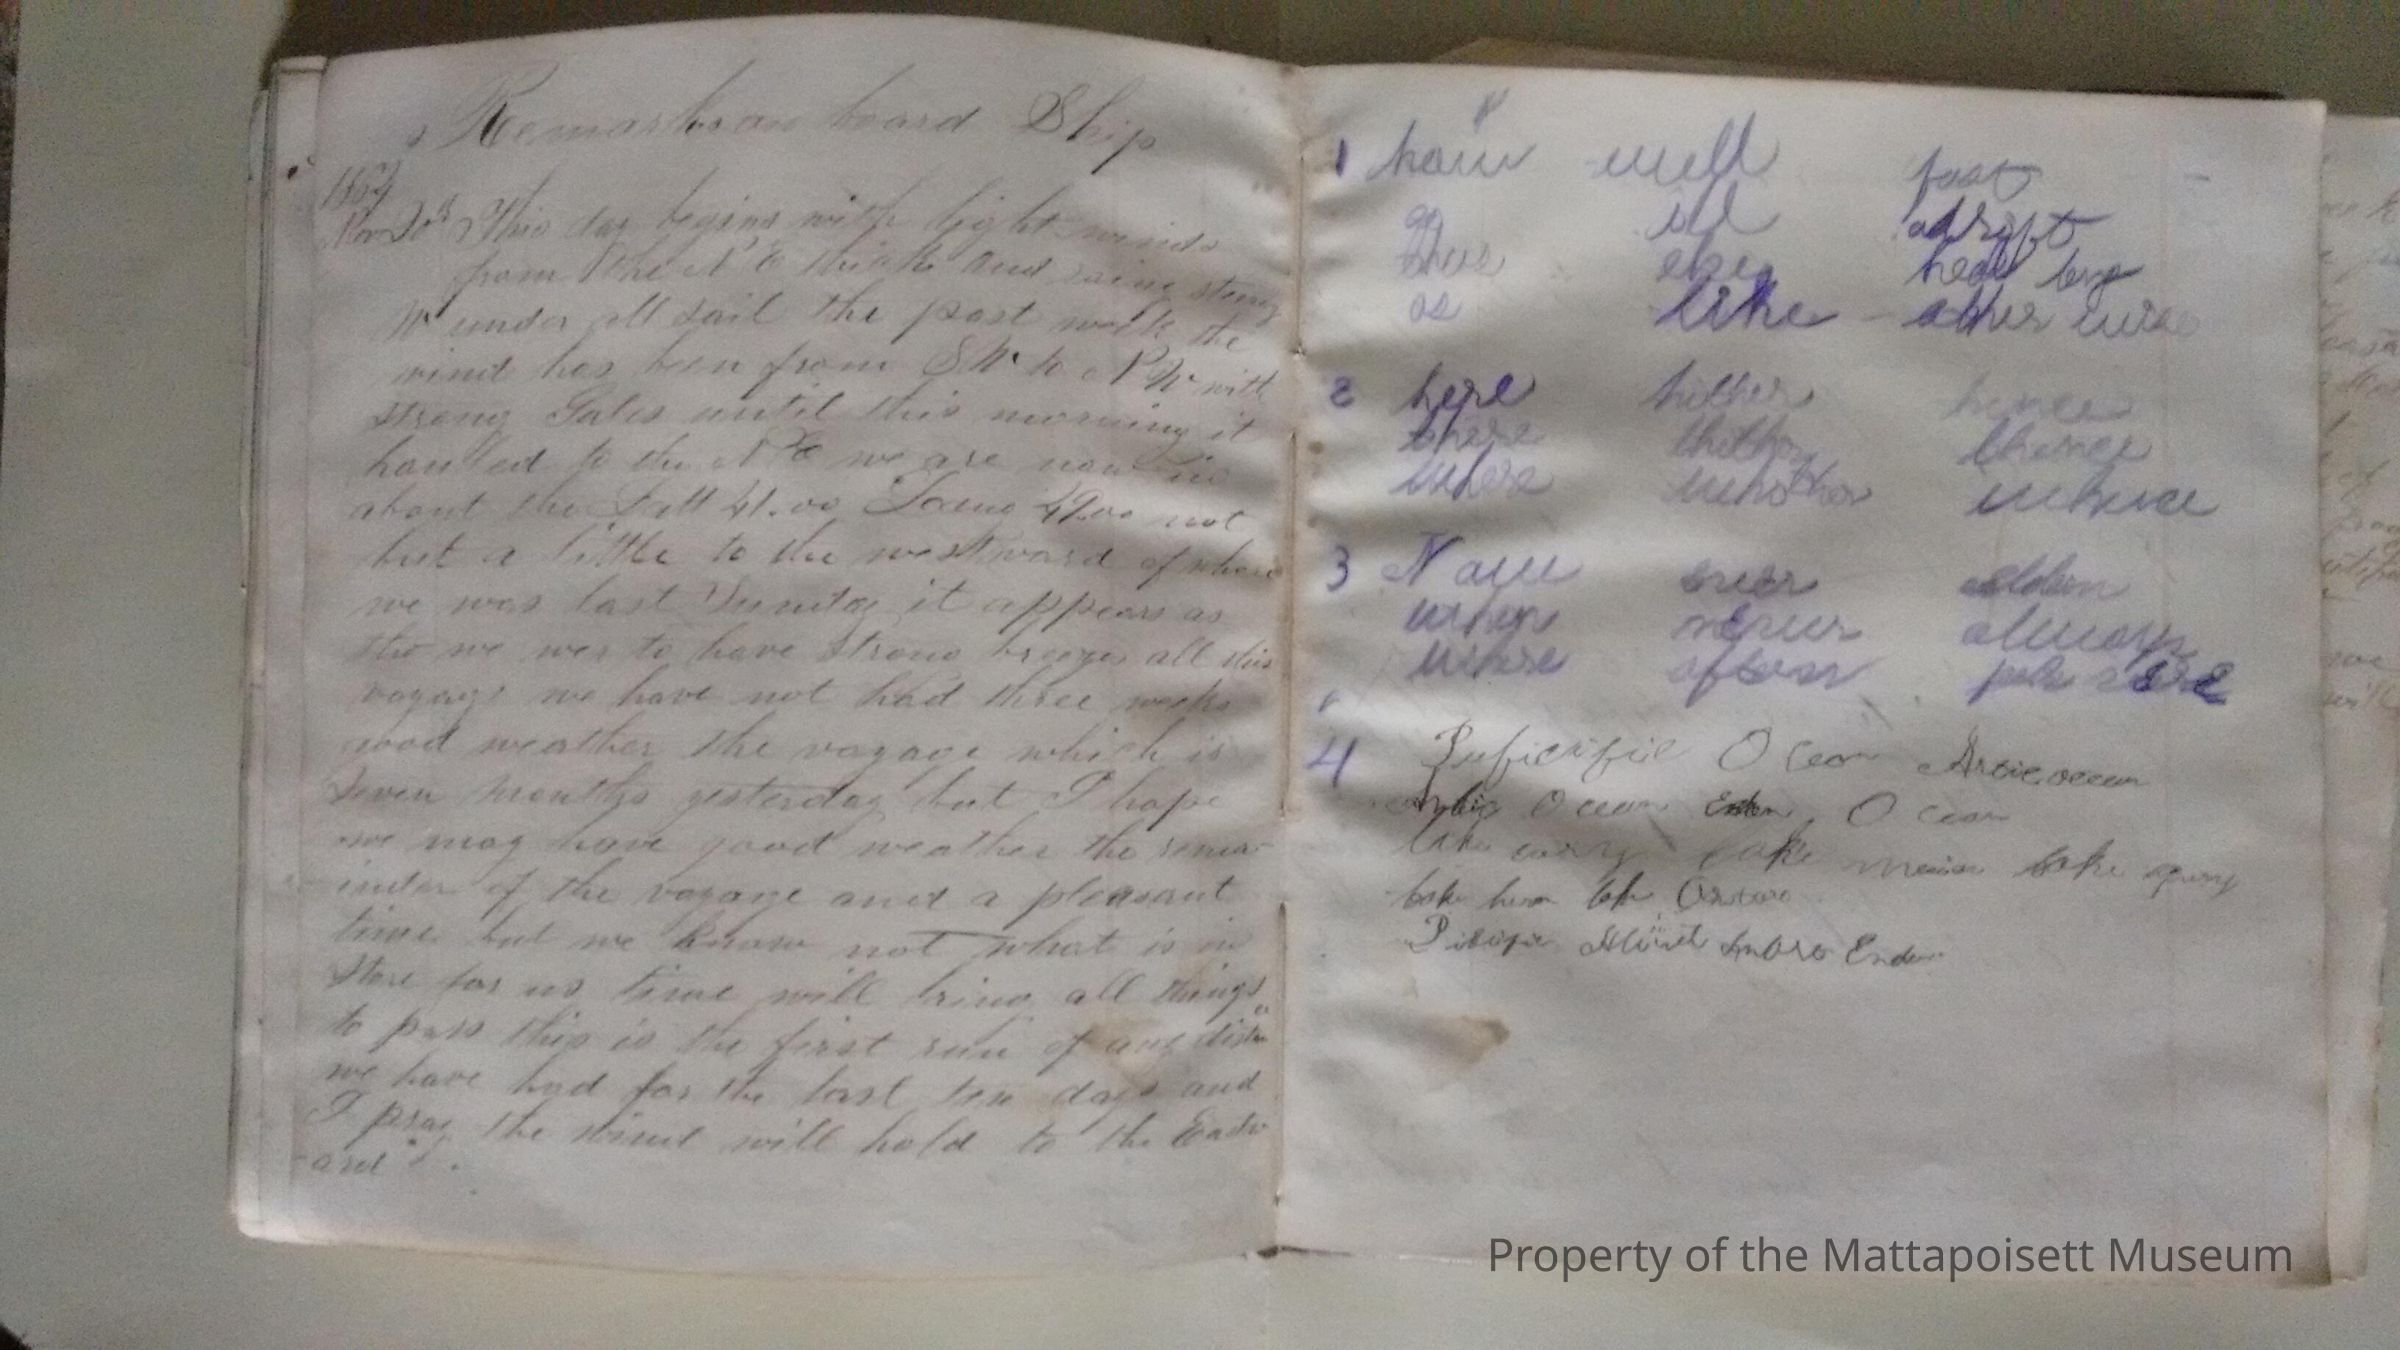 Remarks on board Ship
Nov 20th This day begins with light winds
from the N E thick and rainy steering
W under all sail the past week the
wind has been from S W to N W with
strong Gales until this morning it
hauled to the N E we are now in
about the Latt 41.00 Long 49.00 not
but a little to the westward of where
we was last Sunday it appears as
tho we wer to have strong breezes all this
voyage we have not had three weeks
good weather the voyage which is
seven months yesterday but I hope
we may have good weather the rema-
inder of the voyage and a pleasant
time but we know not what is in
store for us time will bring all things
to pass this is the first run of any distan
we have had for the last ten days and
I pray the wind will hold to the Eastw
-ard
1 how well fast
so ill adrift
thus else head long
as like other wise
2 here hither hence
there thither thence
where whither whence
3 Now ever seldom
when never always
where often
4 Ocean
Ocean Ocean
lake lake lake
lake
Property of the Mattapoisett Museum